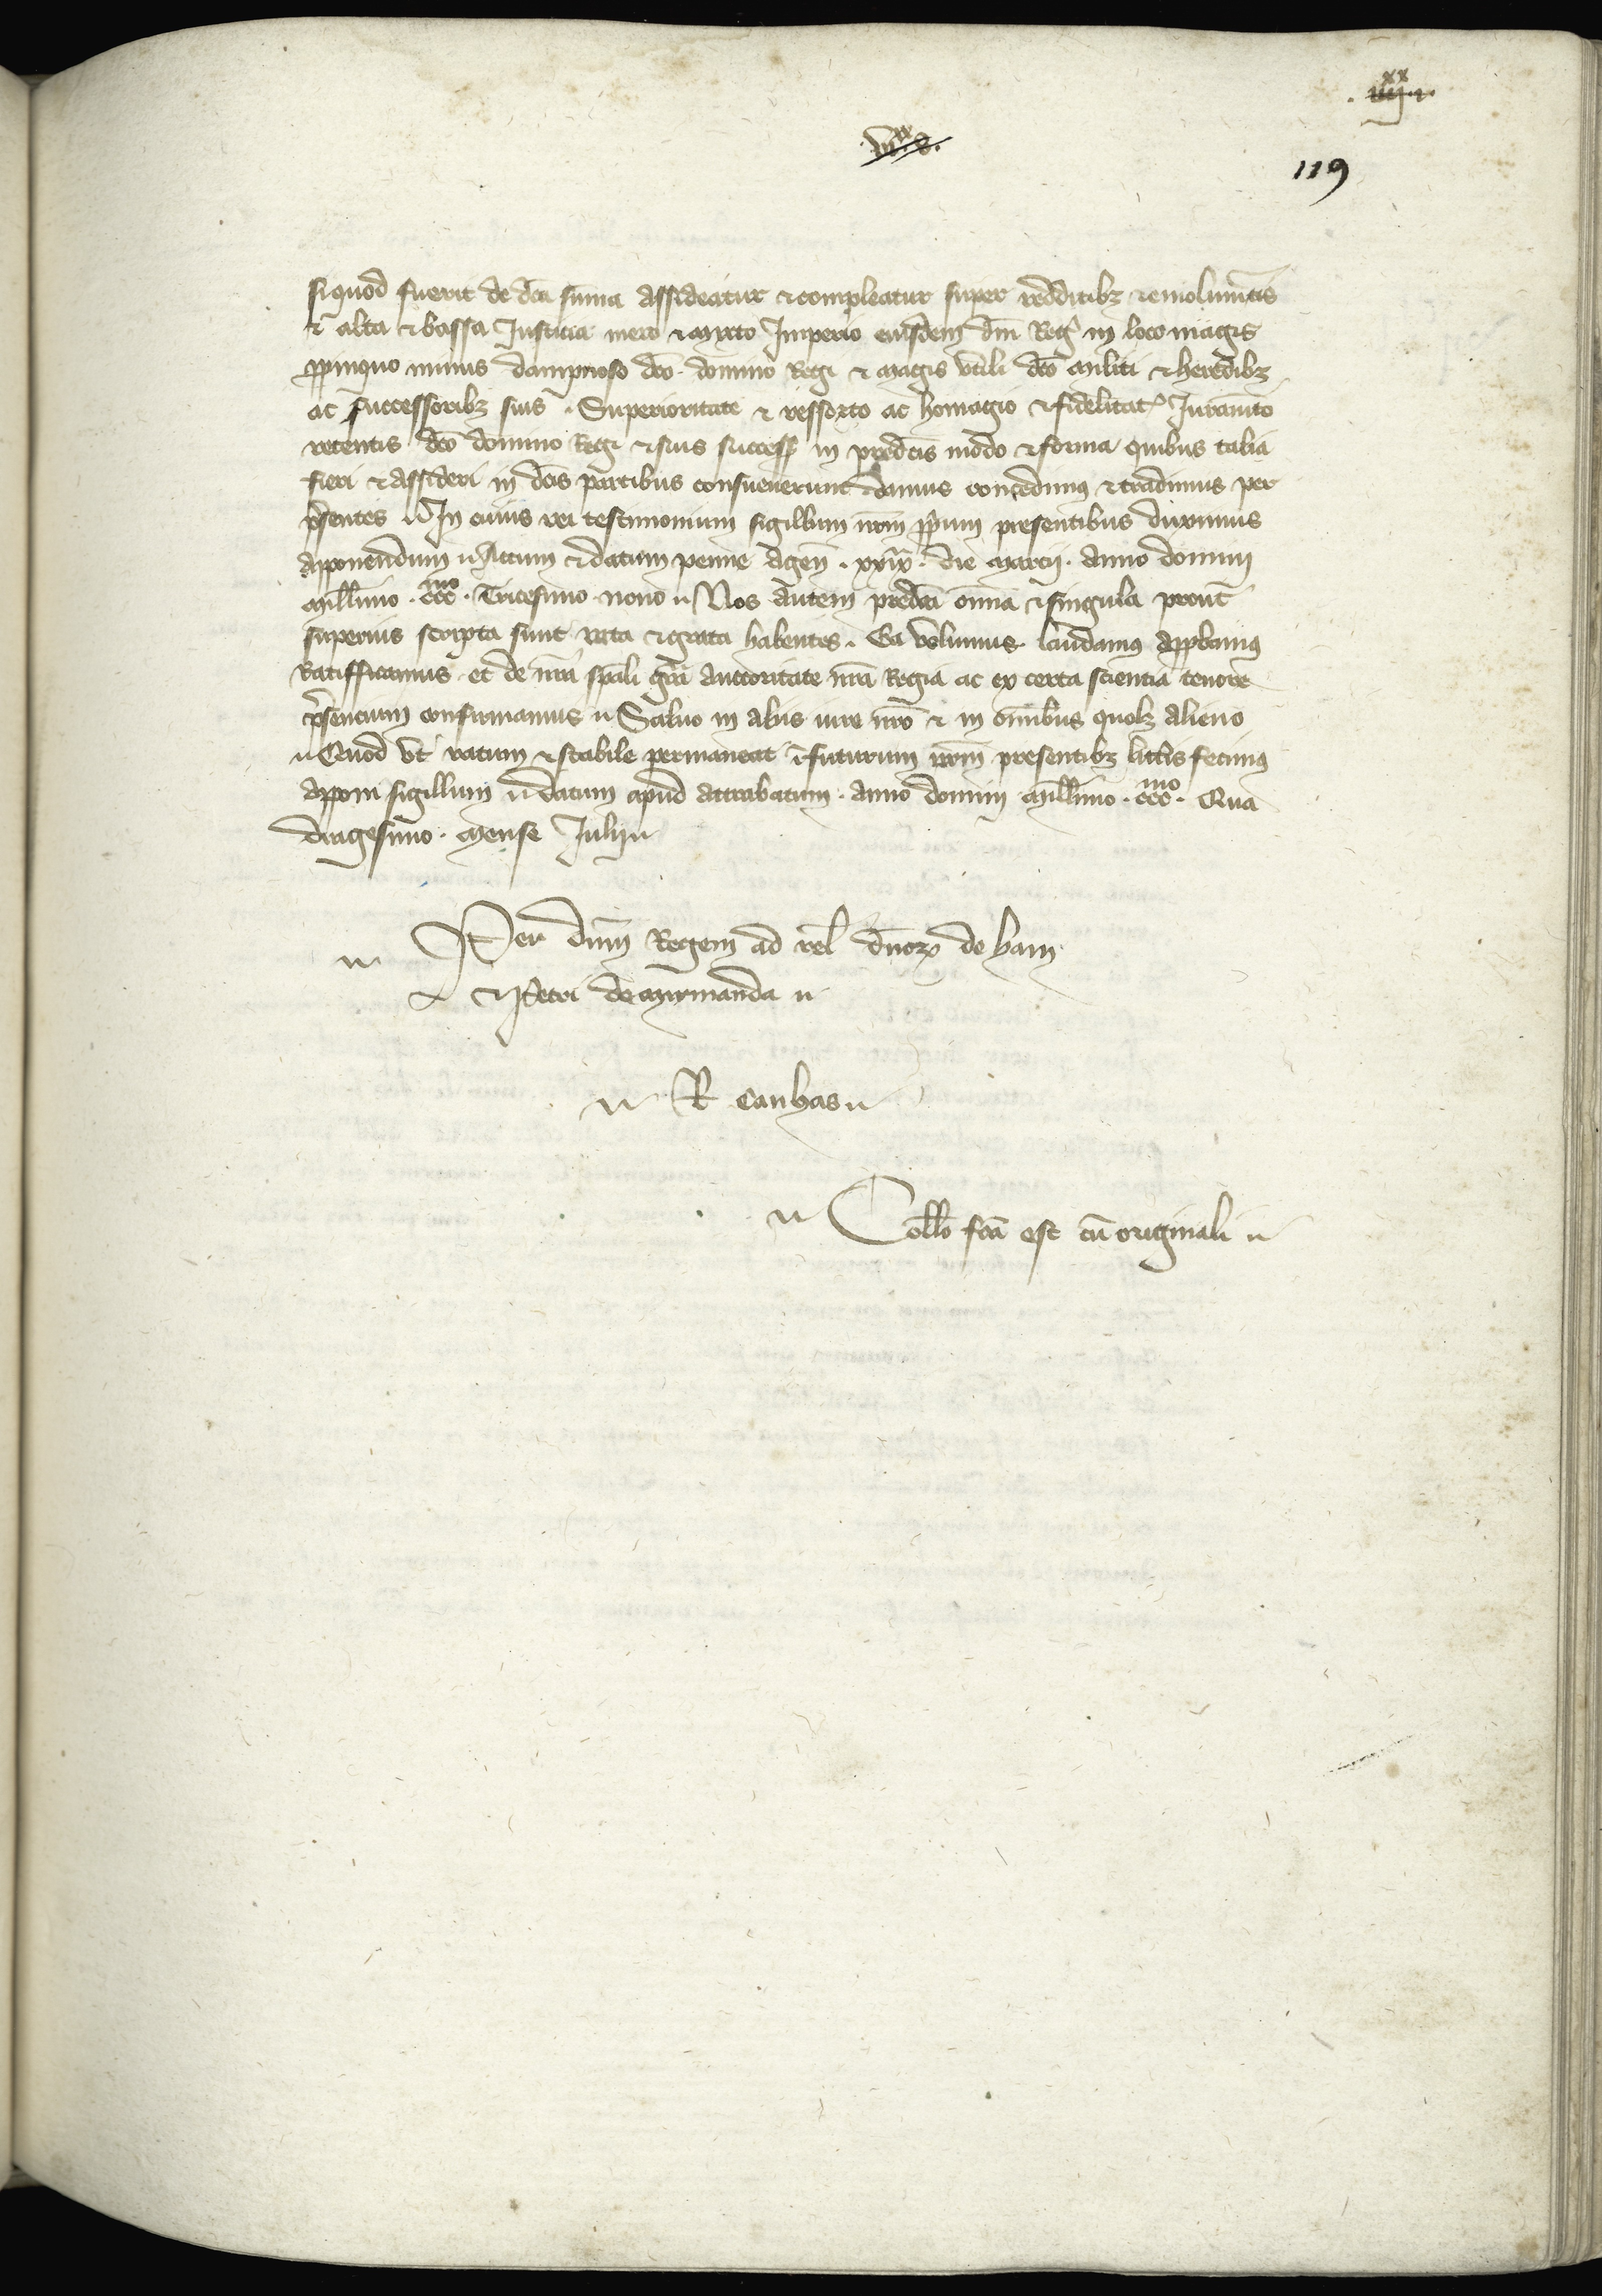 . iiijxx.i.
.vixx.v.
119
siquod fuerit de dc̄a sum̄a assideatur & compleatur super redditibȝ & emolumētis
ī alta & bassa Justicia mero & mixto Imperio eiusdem dn̄i Reg̓ in loco magis
ꝓpinquo minus dampnoso dc̄o domino Regi & magis utili dc̄o militi & heredibȝ
ac successoribȝ suis . Superioritate & ressorto ac homagio & fidelitat̓ Juramēto
retentis dc̄o domino Regi & suis success̓ in predc̄is modo & forma quibus talia
fieri & assideri in dc̄is partibus consueuerunt & damus concedimꝰ & tradimus per
p̄sentes  In cuius rei testimonium sigillum nr̄m ꝓprium presentibus duximus
apponendum  Actum & datum penne Agen̄ . xxix. die marcij . anno domini
mill̄imo . cccmo . Tricesimo nono  Nos autem predc̄a om̄ia & singula prout
superius scripta sunt rata & grata habentes . Ea volumus laudamꝰ approbamꝰ
Ratifficamus et de nr̄a sp̄ali gr̄a auctoritate nr̄a Regia ac ex certa scientia tenore
p̄sencium confirmamus  Saluo in aliis iure nr̄o & in om̄ibus quolȝ alieno
 Quod vt ratum & stabile permaneat ī futurum nr̄m presentibȝ litt̄is fecimꝰ
apponi sigillum  datum apud attrabatum . anno domini mill̄imo . cccmo . Qua
dragesimo . mense Julij
Per dn̄m Regem ad rel̄ dn̄orꝝ de ham
& Petri de mirmanda
R canhas
Coll̄o fc̄a est cū originali